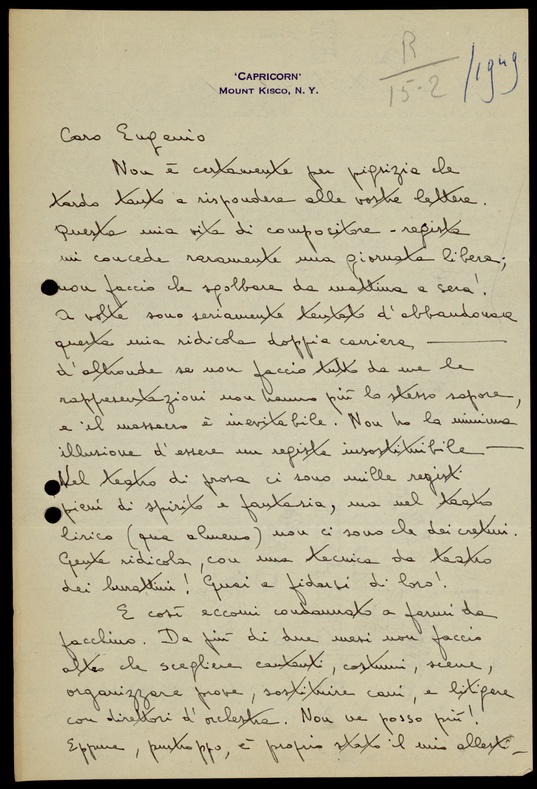 'CAPRICORN'
MOUNT KISCO, N. Y.
R
15-2
/1949
Caro Eugenio
Non è certamente per pigrizia che
tardo tanto a rispondere alle vostre lettere.
Questa mia vita di compositore - regista
mi concede raramente una giornata libera;
non faccio che sgobbare da mattina a sera!
A volte sono seriamente tentato d'abbandonare
questa mia ridicola doppia carriera —
d'altronde se non faccio tutto da me le
rappresentazioni non hanno più lo stesso sapore,
e il massacro è inevitabile. Non ho la minima
illusione d'essere un regista insostituibile —
Nel teatro di prosa ci sono mille registi
pieni di spirito e fantasia, ma nel teatro
lirico (qua almeno) non ci sono che dei cretini.
Gente ridicola, con una tecnica da teatro
dei burattini! Guai a fidarsi di loro!
E così eccomi condannato a farmi da
facchino. Da più di due mesi non faccio
altro che scegliere cantanti, costumi, scene,
organizzare prove, sostituire cani, e litigare
con direttori d'orchestra. Non ne posso più!
Eppure, purtroppo, è proprio stato il mio allesti-